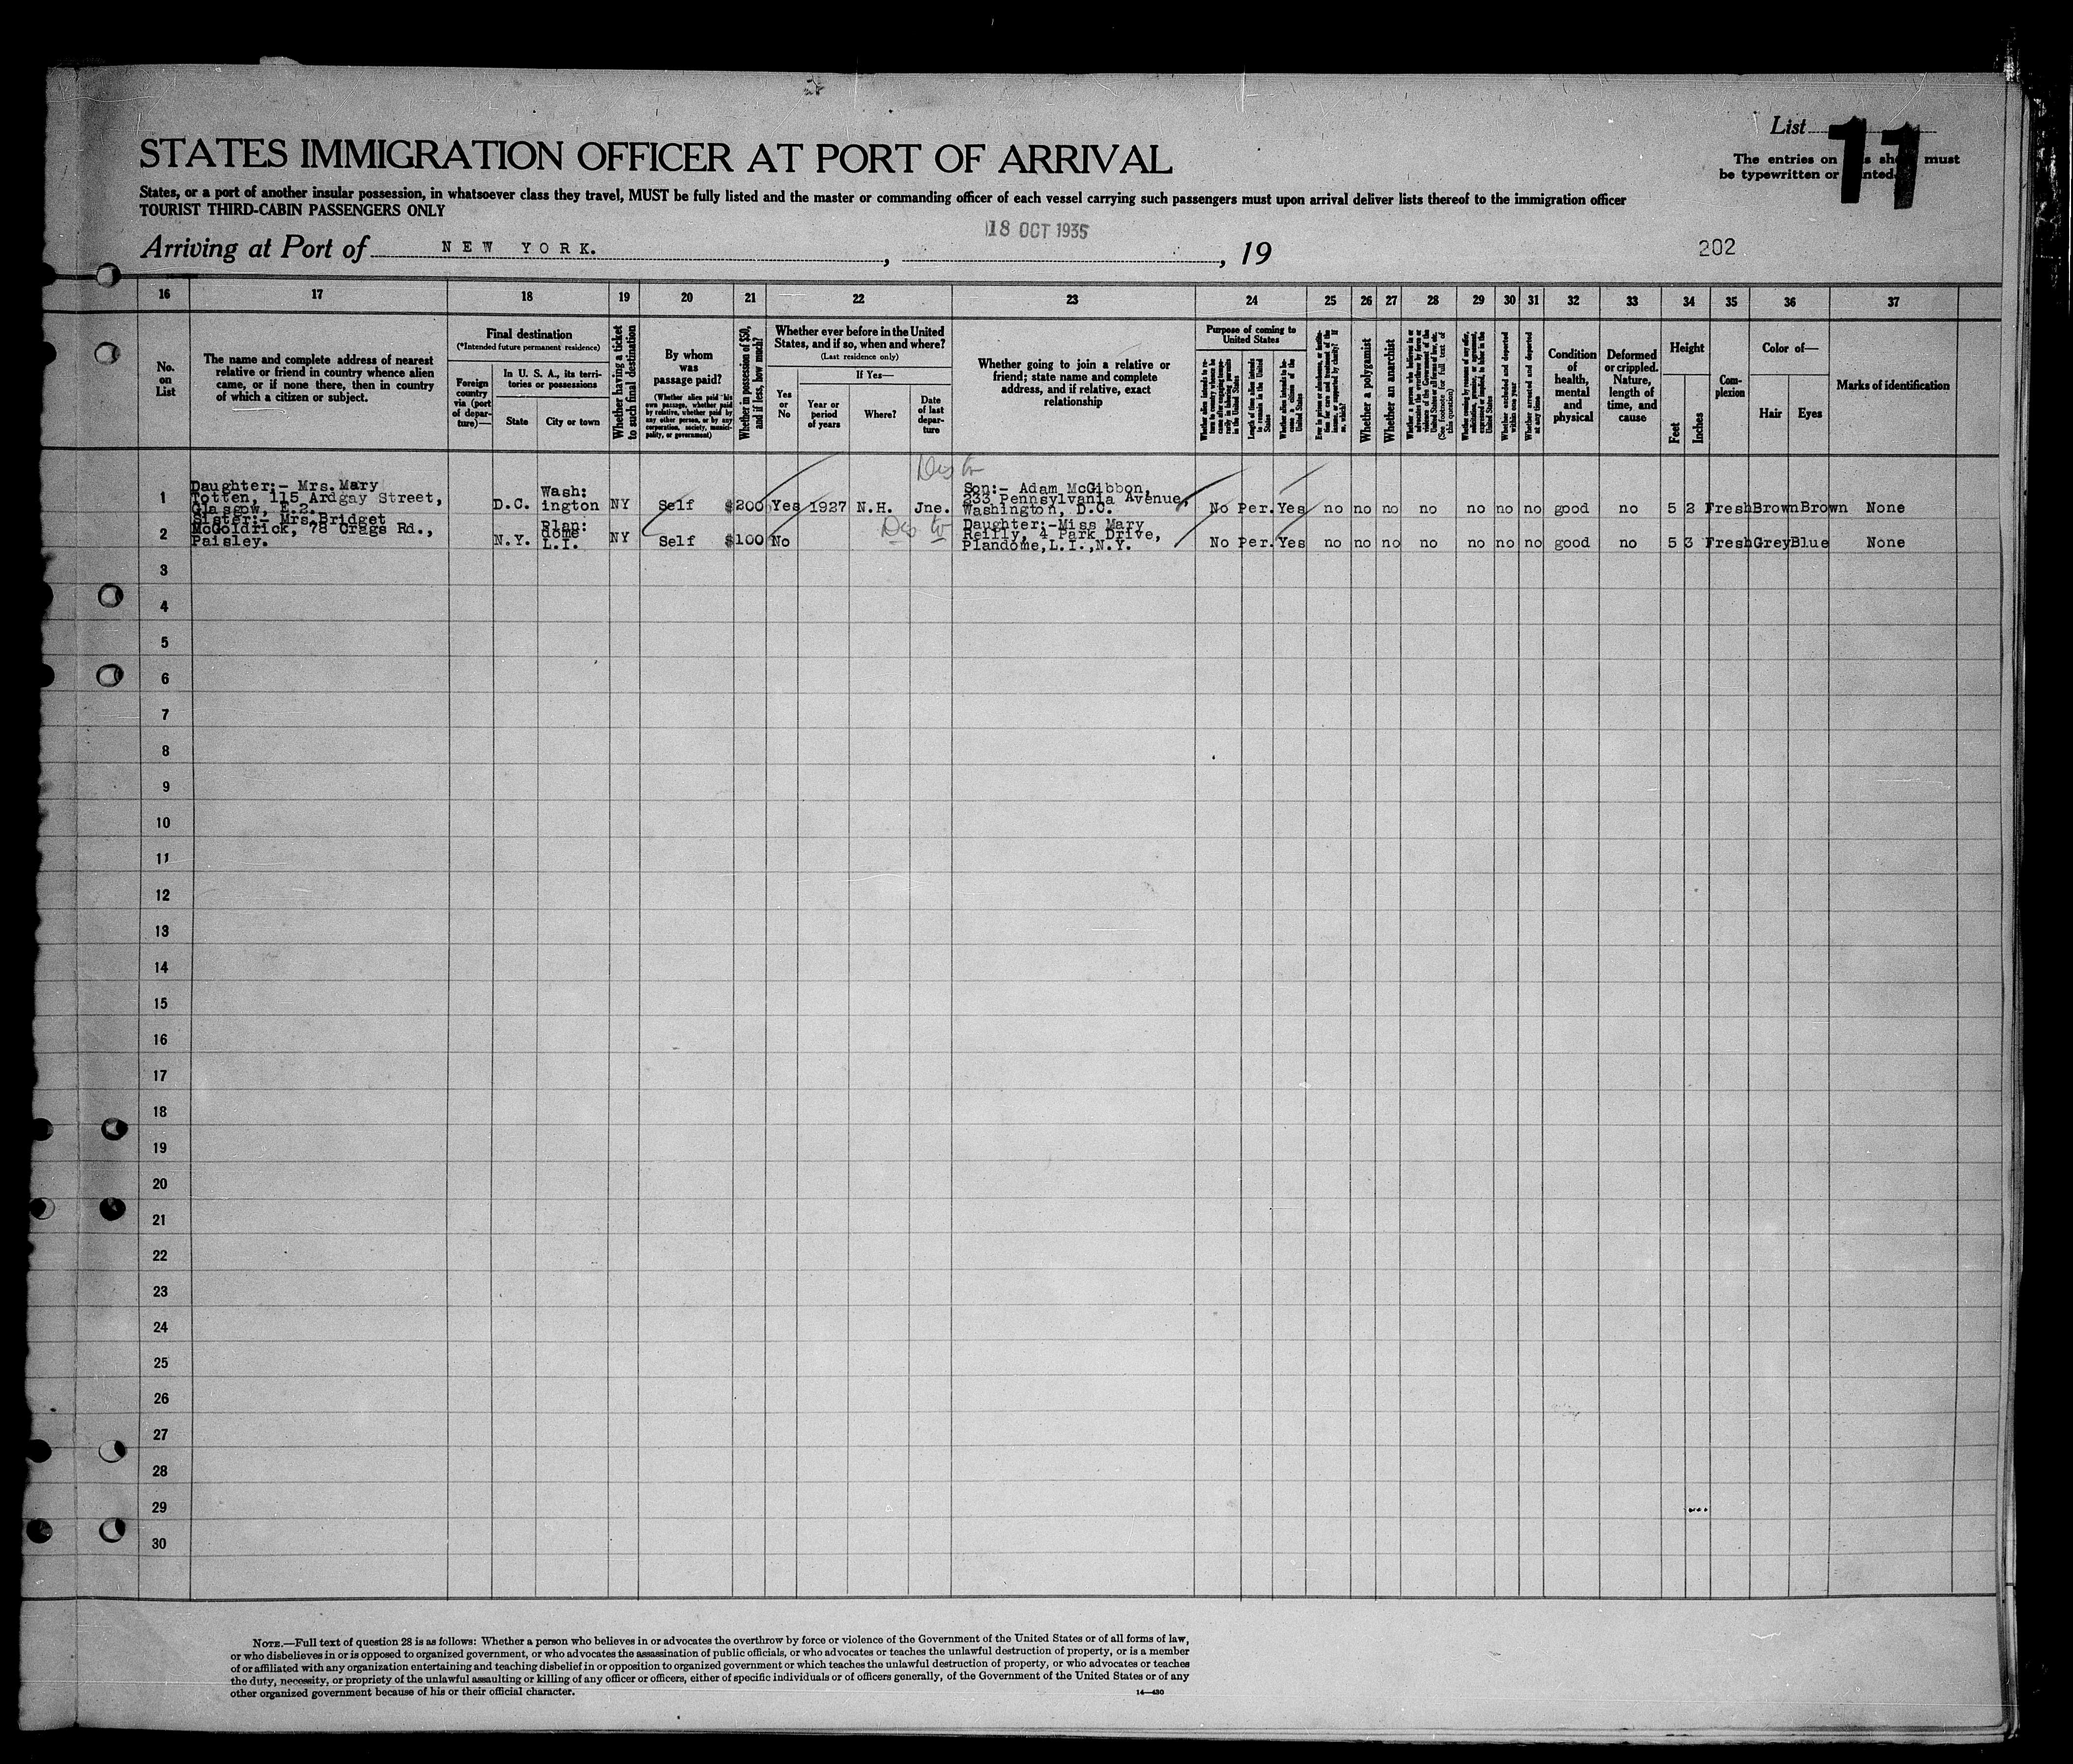 List 11
STATES IMMIGRATION OFFICER AT PORT OF ARRIVAL
The entries on must
be typewritten or
States, or a port of another insular possession, in whatsoever class they travel, MUST be fully listed and the master or commanding officer of each vessel carrying such passengers must upon arrival deliver lists thereof to the immigration officer
TOURIST THIRD-CABIN PASSENGERS ONLY
18 OCT 1935
Arriving at Port of NEW YORK. , , 19
202
16 17 18 19 20 21 22 23 24 25 26 27 28 29 30 31 32 33 34 35 36 37
No. on List
The name and complete address of nearest
relative or friend in country whence alien
came, or if none there, then in country
of which a citizen or subject.
Final destination
(*Intended future permanent residence)
Foreign country via (port of departure)—
In U. S. A., its territories or possessions
State
City or town
Whether having a ticket to such final destination
By whom was passage paid?
(Whether alien paid his own passage, whether paid by relative, whether paid by any other person, or by any corporation, society, municipality, or government)
Whether in possession of $50, and if less, how much?
Whether ever before in the United
States, and if so, when and where?
(Last residence only)
Yes or No
If Yes—
Year or period of years
Where?
Date of last departure
Whether going to join a relative or
friend; state name and complete
address, and if relative, exact
relationship
Purpose of coming to United States
Length of time alien intends to remain in the United States
Whether alien intends to become a citizen of the United States
Whether a polygamist
Whether an anarchist
Whether arrested and deported at any time
Condition of health, mental and physical
Deformed or crippled. Nature, length of time, and cause
Height
Feet
Inches
Complexion
Color of—
Hair
Eyes
Marks of identification
1
Daughter:- Mrs. Mary
Totten, 115 Ardgay Street,
Glasgow, E.2.
D.C.
Wash:
ington
NY Self $200 Yes 1927 N.H. Jne.
Son:- Adam McGibbon,
233 Pennsylvania Avenue,
Washington, D.C.
No Per. Yes no no no no no no no good no 5 2 Fresh Brown Brown None
2
Sister:- Mrs. Bridget
McGoldrick, 78 Crags Rd.,
Paisley.
N.Y.
Plan:
dome
L.I.
NY Self $100 No
Daughter:-Miss Mary
Reilly, 4 Park Drive,
Plandome,L.I.,N.Y.
No Per. Yes no no no no no no no good no 5 3 Fresh Grey Blue None
3
4
5
6
7
8
9
10
11
12
13
14
15
16
17
18
19
20
21
22
23
24
25
26
27
28
29
30
NOTE.—Full text of question 28 is as follows: Whether a person who believes in or advocates the overthrow by force or violence of the Government of the United States or of all forms of law,
or who disbelieves in or is opposed to organized government, or who advocates the assassination of public officials, or who advocates or teaches the unlawful destruction of property, or is a member
of or affiliated with any organization entertaining and teaching disbelief in or opposition to organized government or which teaches the unlawful destruction of property, or who advocates or teaches
the duty, necessity, or propriety of the unlawful assaulting or killing of any officer or officers, either of specific individuals or of officers generally, of the Government of the United States or of any
other organized government because of his or their official character.
14—430